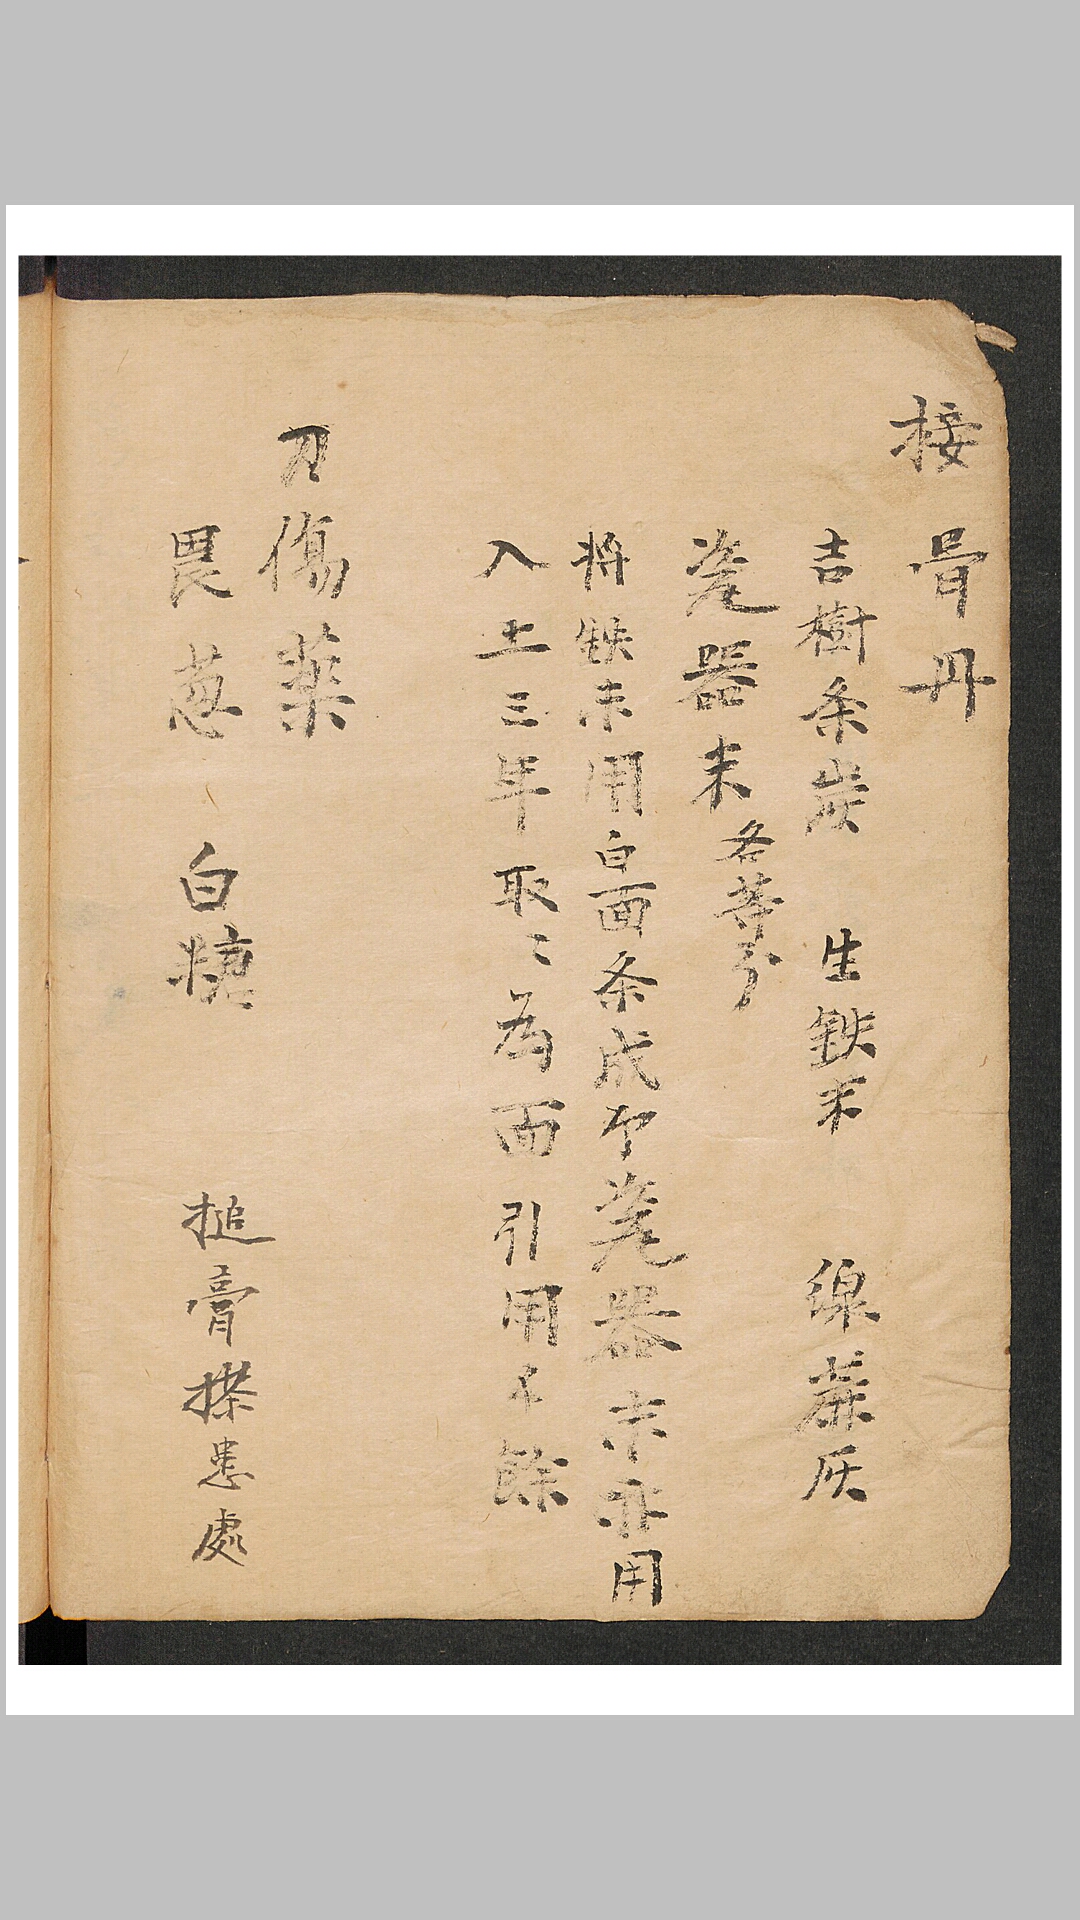 接骨丹
吉樹条炭 生鉄末 線蔴灰
瓷器末各等分
将鉄末用白面条成 瓷器末亦用
入土三年取〻為面引用 餘
刀傷薬
畏葱 白糖 搥膏搽患處